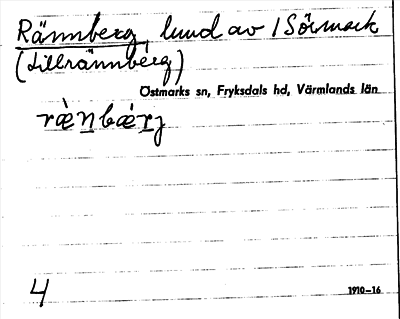 Rännberg, lund av 1 Sörmark
(Lillrännberg)
Östmarks sn, Fryksdals hd, Värmlands län
ræ̀nbæ̀rj
4
1910–16